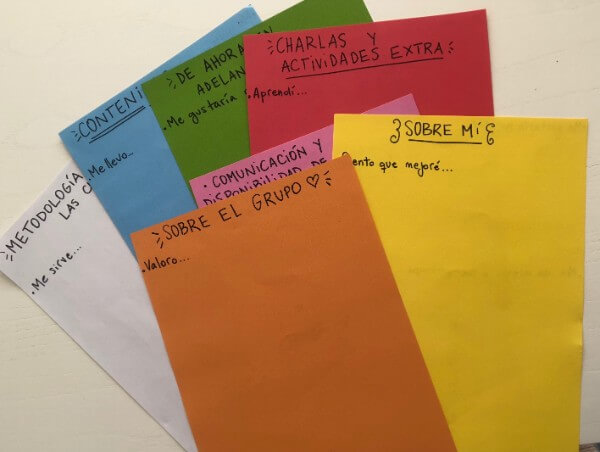 METODOLOGÍA
LAS
• Me sirve...
Me llevo...
DE AHORA EN
ADELAN
• Me gustaría
CHARLAS Y
ACTIVIDADES EXTRA
• Aprendí...
• COMUNICACIÓN Y
DISPONIBILIDAD DE
SOBRE MÍ
que mejoré...
SOBRE EL GRUPO ♡
• Valoro...